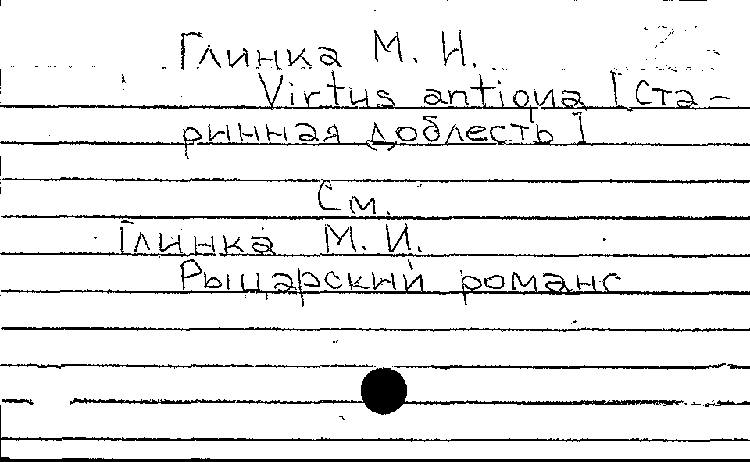 Глинка М. И.
Virtus antiqua [Ста-
ринная доблесть]
См.
Глинка М. И.
Рыцарский романс